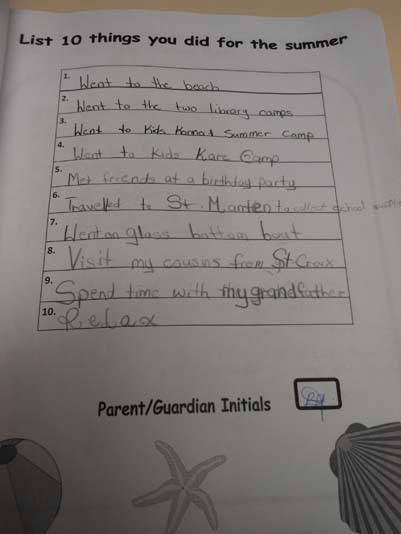 List 10 things you did for the summer
1. Went to the beach
2. Went to the two library camps
3. Went to Kids Konnat Summer Camp
4. Went to Kids Kare Camp
5. Met friends at a birthday party
6. Travelled to St. Marten to collect school
7. Went on glass bottom boat
8. Visit my cousins from St Croix
9. Spend time with my grandfather
10. Relax
Parent/Guardian Initials